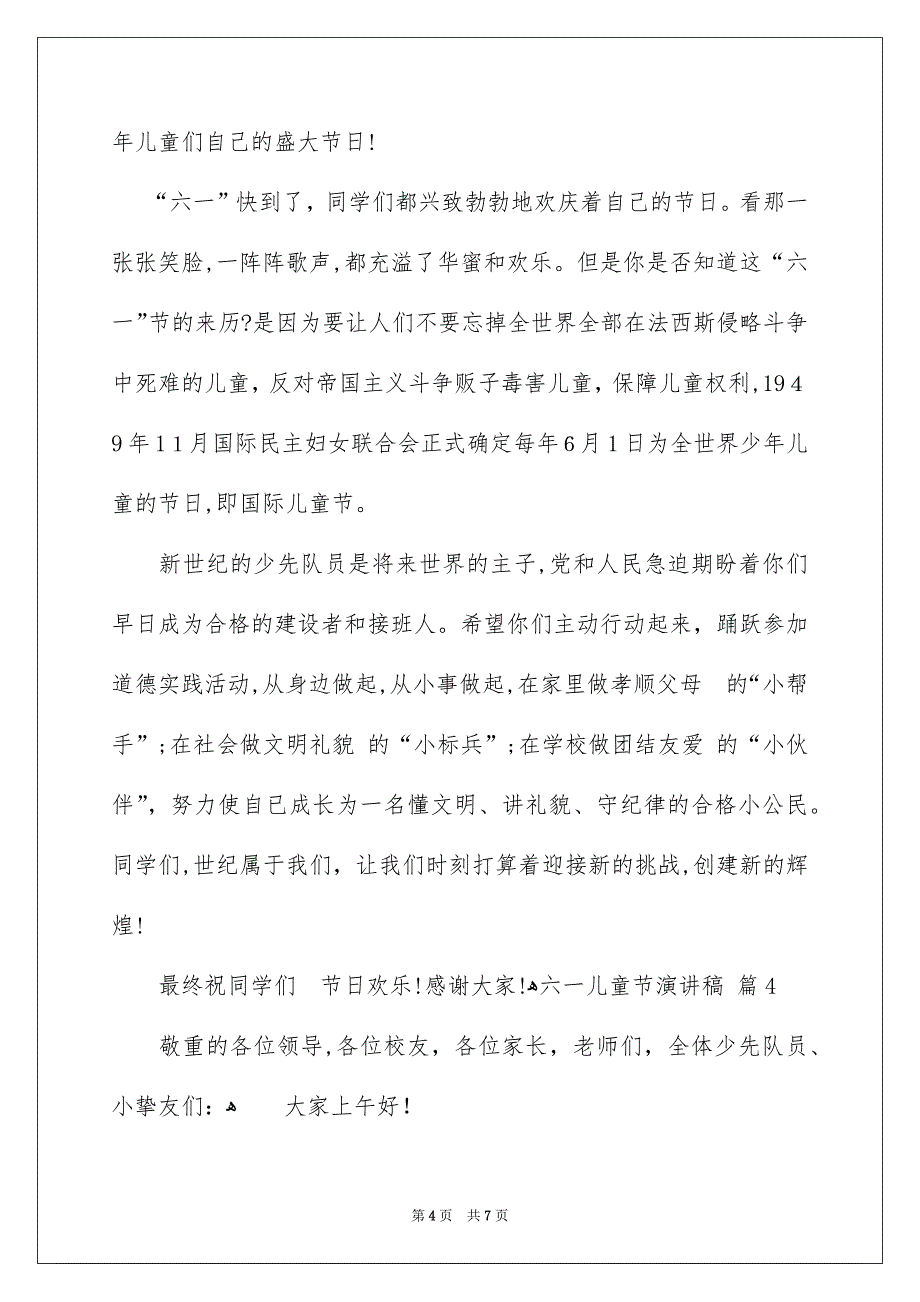 年儿童们自己的盛大节日!
“六一”快到了，同学们都兴致勃勃地欢庆着自己的节日。看那一
张张笑脸,一阵阵歌声,都充溢了华蜜和欢乐。但是你是否知道这“六
一”节的来历?是因为要让人们不要忘掉全世界全部在法西斯侵略斗争
中死难的儿童，反对帝国主义斗争贩子毒害儿童，保障儿童权利,194
9年11月国际民主妇女联合会正式确定每年6月1日为全世界少年儿
童的节日,即国际儿童节。
新世纪的少先队员是将来世界的主子,党和人民急迫期盼着你们
早日成为合格的建设者和接班人。希望你们主动行动起来，踊跃参加
道德实践活动,从身边做起,从小事做起,在家里做孝顺父母　的“小帮
手”;在社会做文明礼貌 的“小标兵”;在学校做团结友爱 的“小伙
伴”，努力使自已成长为一名懂文明、讲礼貌、守纪律的合格小公民。
同学们,世纪属于我们，让我们时刻打算着迎接新的挑战,创建新的辉
煌!
最终祝同学们　节日欢乐!感谢大家!ﻫ六一儿童节演讲稿 篇4
敬重的各位领导,各位校友，各位家长，老师们，全体少先队员、
小挚友们：ﻫ　　大家上午好！
第4页 共7页